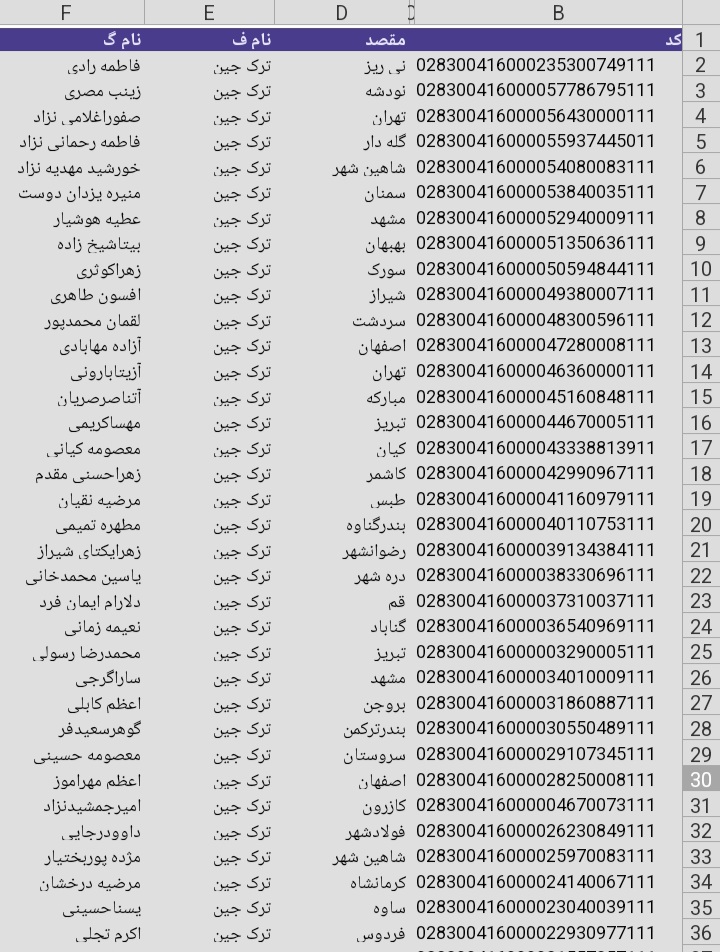 F E D C B
نام گ نام ف مقصد کد 1
فاطمه رادی ترک جین نی ریز 028300416000235300749111 2
زینب مصری ترک جین نودشه 028300416000057786795111 3
صفوراغلامی نزاد ترک جین تهران 028300416000056430000111 4
فاطمه رحمانی نژاد ترک جین گله دار 028300416000055937445011 5
خورشید مهدیه نزاد ترک جین شاهین شهر 028300416000054080083111 6
منیره یزدان دوست ترک جین سمنان 028300416000053840035111 7
عطیه هوشیار ترک جین مشهد 028300416000052940009111 8
بیتاشیخ زاده ترک جین بهبهان 028300416000051350636111 9
زهراکوثری ترک جین سورک 028300416000050594844111 10
افسون طاهری ترک جین شیراز 028300416000049380007111 11
لقمان محمدپور ترک جین سردشت 028300416000048300596111 12
آزاده مهابادی ترک جین اصفهان 028300416000047280008111 13
آزیتابارونی ترک جین تهران 028300416000046360000111 14
آتناصرصریان ترک جین مبارکه 028300416000045160848111 15
مهساکریمی ترک جین تبریز 028300416000044670005111 16
معصومه کیانی ترک جین کیان 028300416000043338813911 17
زهراحسنی مقدم ترک جین کاشمر 028300416000042990967111 18
مرضیه نقیان ترک جین طبس 028300416000041160979111 19
مطهره تمیمی ترک جین بندرگناوه 028300416000040110753111 20
زهرایکتای شیراز ترک جین رضوانشهر 028300416000039134384111 21
یاسین محمدخانی ترک جین دره شهر 028300416000038330696111 22
دلارام ایمان فرد ترک جین قم 028300416000037310037111 23
نعیمه زمانی ترک جین گناباد 028300416000036540969111 24
محمدرضا رسولی ترک جین تبریز 028300416000003290005111 25
ساراگرجی ترک جین مشهد 028300416000034010009111 26
اعظم کابلی ترک جین بروجن 028300416000031860887111 27
گوهرسعیدفر ترک جین بندرترکمن 028300416000030550489111 28
معصومه حسینی ترک جین سروستان 028300416000029107345111 29
اعظم مهراموز ترک جین اصفهان 028300416000028250008111 30
امیرجمشیدنزاد ترک جین کازرون 028300416000004670073111 31
داوودرجایی ترک جین فولادشهر 028300416000026230849111 32
مژده پوربختیار ترک جین شاهین شهر 028300416000025970083111 33
مرضیه درخشان ترک جین کرمانشاه 028300416000024140067111 34
یسناحسینی ترک جین ساوه 028300416000023040039111 35
اکرم تجلی ترک جین فردوس 028300416000022930977111 36